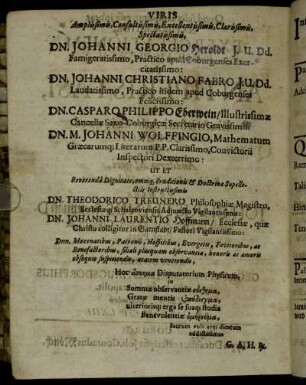 VIRIS
Amplissimis, Consultissimis, Excellentissimis, Clarissimis,
Spectatissimis,
DN. JOHANNI GEORGIO Heroldt J. U. Dd.
Famigeratissimo, Practico apud Coburgenses Exer-
citatissimo:
DN. JOHANNI CHRISTIANO FABRO J.U. Dd.
Laudatissimo, Practico itidem apud Coburgenses
Felicissimo:
DN. CASPARO PHILIPPO Eberwein/ Illustrissimæ
Cancellariæ Saxo-Coburgicæ Secretario Gravissimo:
DN. M. JOHANNI WOLFFINGIO, Mathematum
Græcarumq; Literarum P.P. Clarissimo, Convictorii
Inspectori Dexterrimo:
UT ET
Reverendâ Dignitate, omniq; Eruditionis & Doctrinæ Supelle-
ctile Instructissimis
DN. THEODORICO TREUNERO, Philosophiæ Magistro,
Ecclesiæ Adjuncto Vigilantissimo:
DN. JOHANNI LAURENTIO Hoffmann/ Ecclesiæ, quæ
Christo colligitur in Pastori Vigilantissimo:
Dnn. Mæcenatibus, Patronis, Hospitibus, Evergetis, Fautoribus, ac
Benefactoribus, filiali plusquam observantiâ, honoris ac amoris
obsequio suspiciendis, ætatem venerandis,
Hoc Disputatorium Physicum,
in
Summæ observantiæ
Gratæ mentis
ulteriorisq; erga se suaq; studia
Benevolentiæ
sacrum esse atq; dicatum
G. A. H. R.